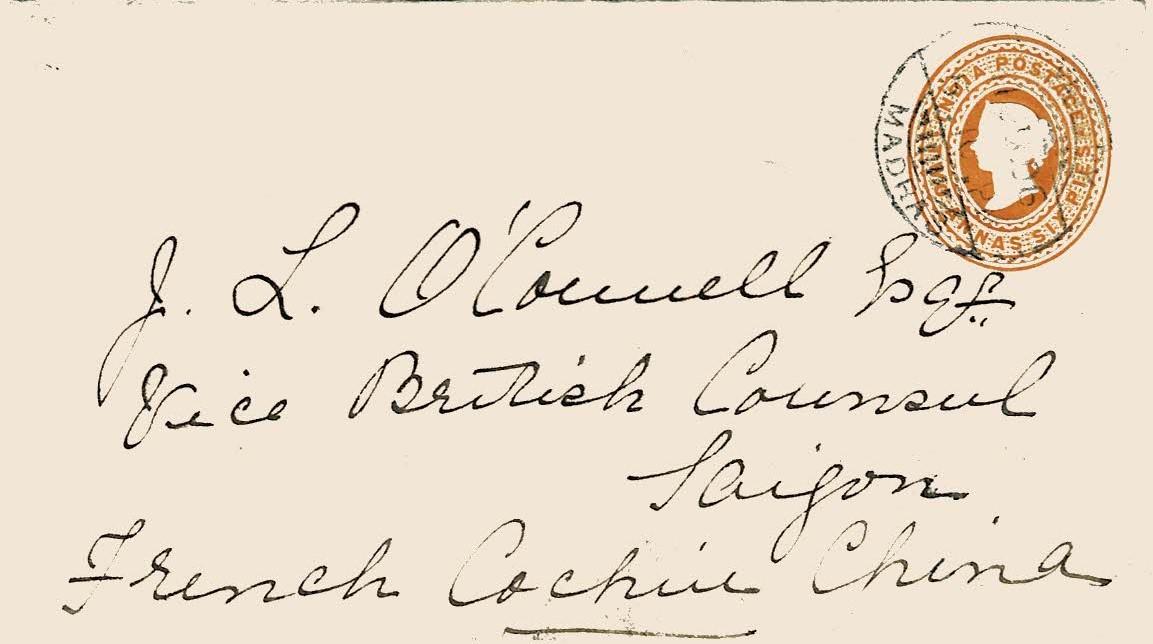 INDIA POSTAGE
ANNAS SIX PIES
MADRAS
J. L. O'Connell Esqr
Vice British Counsul
Saigon
French Cochin China